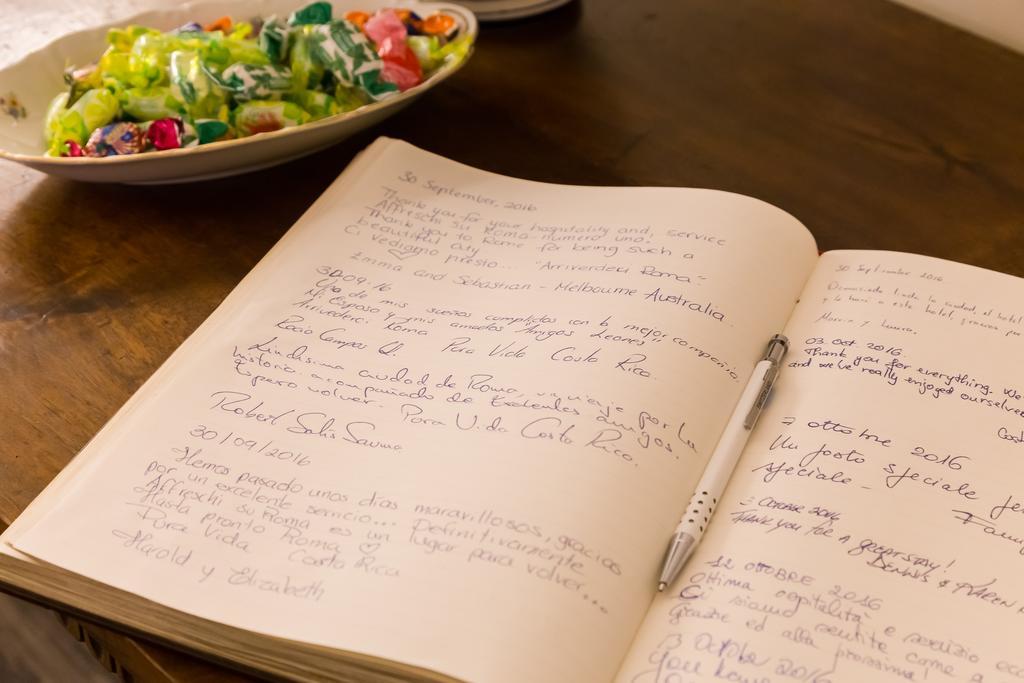 30 September, 2016
Thank you for your hospitality and, service
Affreschi su Roma numero uno.
Thank you to Rome for being such a
beautiful city
Ci vediamo presto... "Arriverdeci Roma".
Emma and Sebastian - Melbourne Australia.
30.09.16
Uno de mis sueños cumplidos con la mejor compañia,
Mi Esposo y mis amados "Amigos Leones"
Arrivederci Roma Pura Vida Costa Rica.
Rocio Campos Q.
Lindisima ciudad de Roma, un viaje por la
historia acompañado de Exelentes amigos.
Espero volver. Pura Vida Costa Rica.
Robert Solis
30/09/2016
Hemos pasado unos días maravillosos, gracias
por un excelente servicio... Definitivamente
Affreschi su Roma es un lugar para volver...
Hasta pronto Roma
Pura Vida Costa Rica
Harold y Elizabeth
30 Septiembre 2016
linda la ciudad, el hotel
a este hotel, gracias por
Maria y Laura.
03. oct 2016.
Thank you for everything. We
and we've really enjoyed ourselves
7 ottobre 2016
Un posto speciale
speciale -
OCTOBER 2016
THANK YOU FOR A GREAT STAY!
DENNIS & KAREN
12 OTTOBRE 2016
Ottima ospitalità e servizio
Ci siamo sentite come a
Grazie ed alla prossima!
13 Ottobre 2016
You